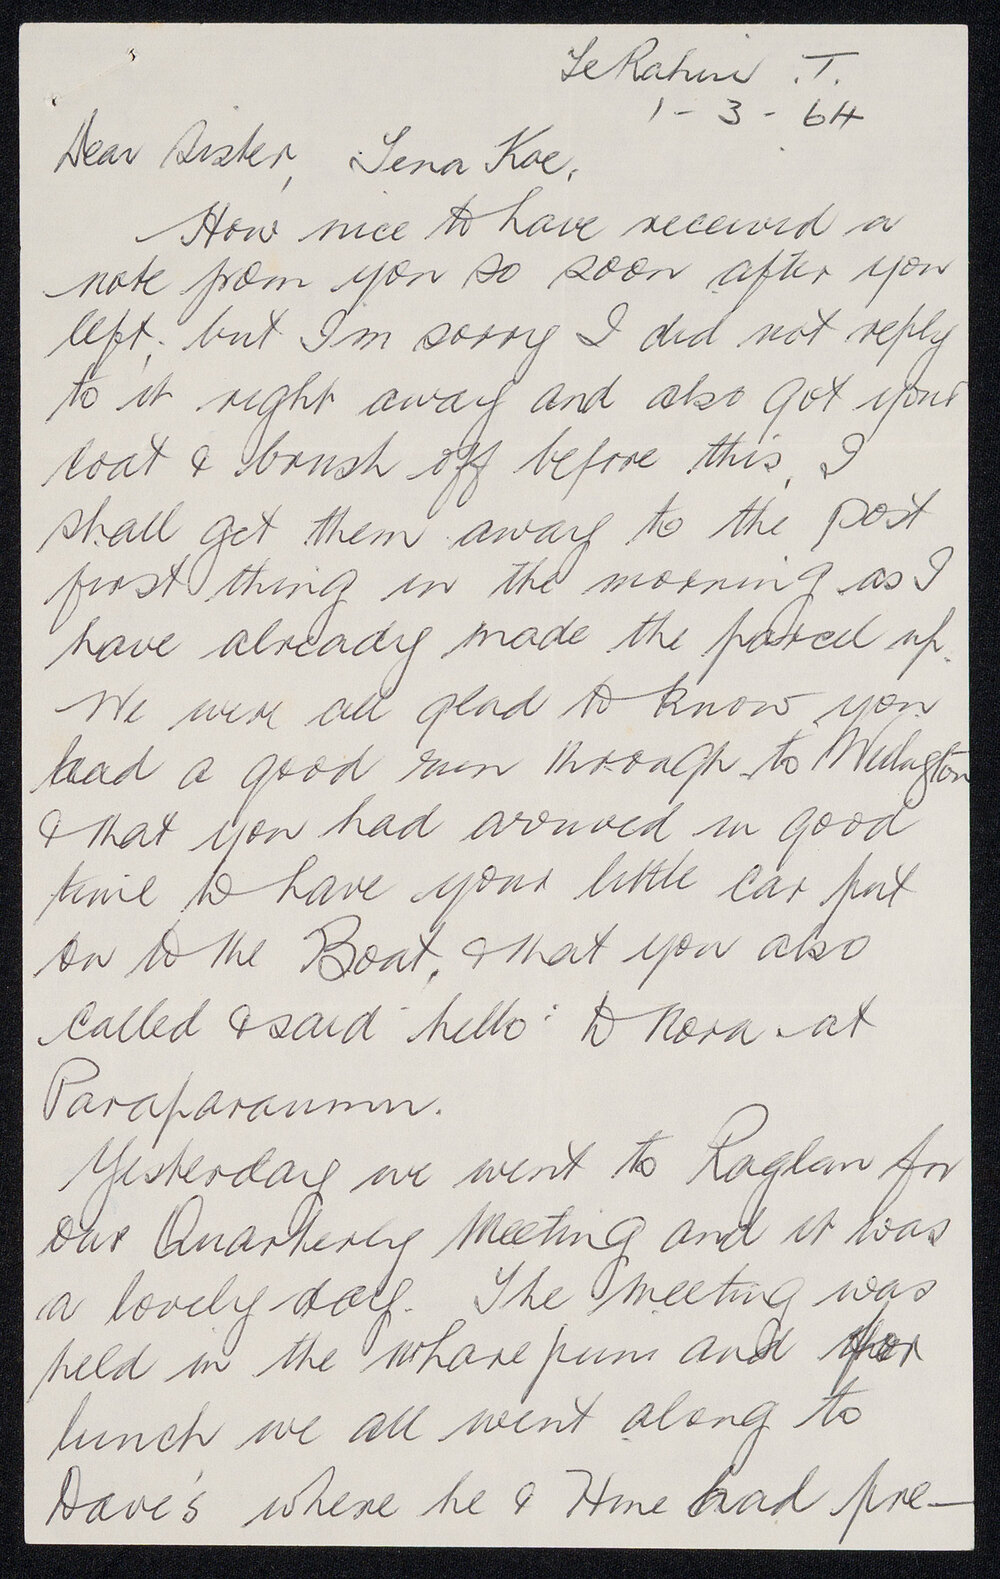 Te Rahui .T.
1 - 3 - 64
Dear Sister, Tena Koe,
How nice to have received a
note from you so soon after you
left, but I'm sorry I did not reply
to it right away and also got your
coat & brush off before this, I
shall get them away to the post
first thing in the morning as I
have already made the parcel up.
We were all glad to know you
had a good run through to Wellington
& that you had arrived in good
time to have your little car put
on to the Boat, & that you also
called & said "hello" to Nora at
Paraparaumu.
Yesterday we went to Raglan for
our Quarterly Meeting and it was
a lovely day. The meeting was
held in the wharepuni and for
lunch we all went along to
Dave's where he & Hine had pre-